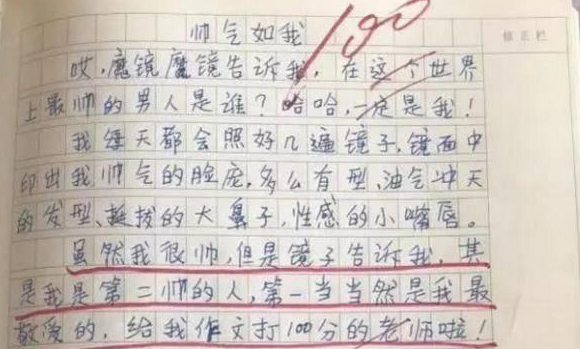 帅气如我
100
修正栏
哎,魔镜魔镜告诉我,在这个世界
上最帅的男人是谁?哈哈,一定是我!
我每天都会照好几遍镜子,镜面中
印出我帅气的脸庞,多么有型、油气冲天
的发型、挺拔的大鼻子,性感的小嘴唇。
虽然我很帅,但是镜子告诉我,其
是我是第二帅的人,第一当当然是我最
敬爱的,给我作文打100分的老师啦!